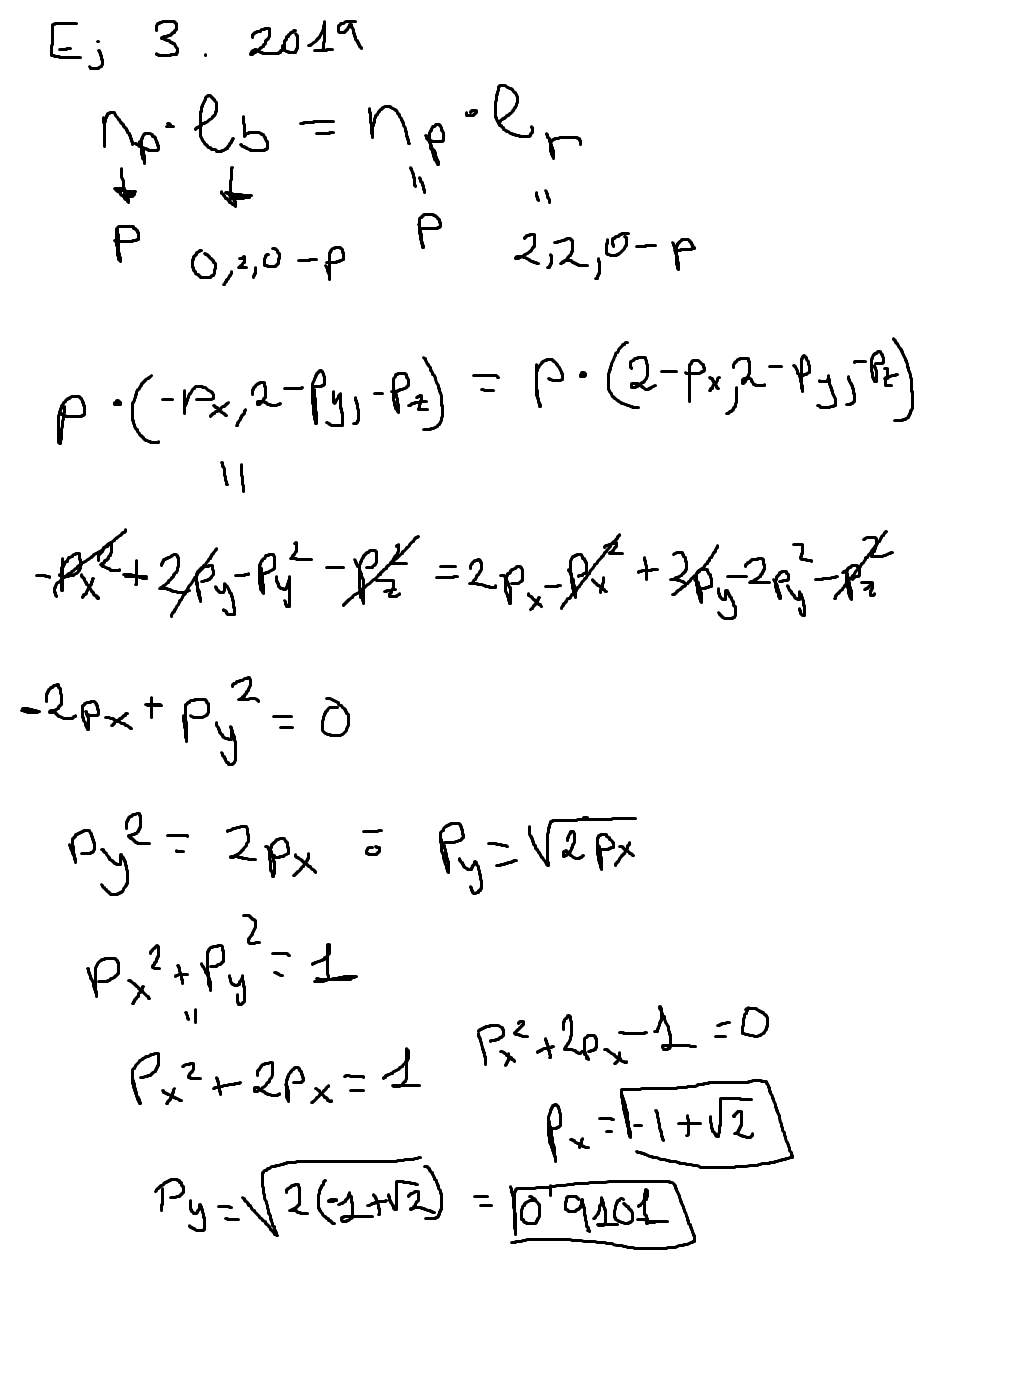 Ej 3. 2019
n_p · l_b = n_p · l_r
↓ ↓ " "
p 0,2,0-p p 2,2,0-p
p · (-p_x, 2-p_y, -p_z) = p · (2-p_x, 2-p_y, -p_z)
"
-p_x² + 2p_y - p_y² - p_z² = 2p_x - p_x² + 2p_y - 2p_y² - p_z²
-2p_x + p_y² = 0
p_y² = 2p_x = p_y = √(2p_x)
p_x² + p_y² = 1
"
p_x² + 2p_x = 1 p_x² + 2p_x - 1 = 0
p_x = -1+√2
p_y = √(2(-1+√2)) = 0'9101